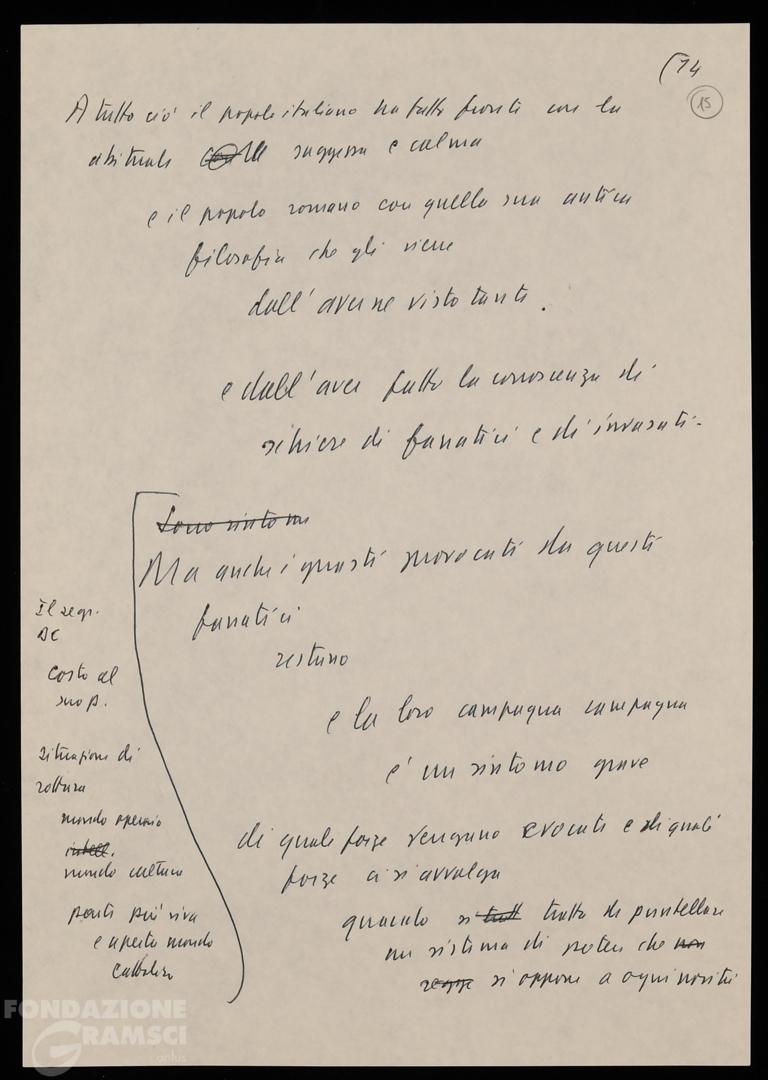 (14
15
A tutto ciò il popolo italiano ha fatto fronte con la
abituale saggezza e calma
e il popolo romano con quella sua antica
filosofia che gli viene
dall'averne visto tanti.
e dall'aver fatto la conoscenza di
schiere di fanatici e di invasati.
Sono sintomi
Ma anche i guasti provocati da questi
fanatici
restano
e la loro campagna campagna
è un sintomo grave
di quale forze vengano evocati e di quali
forze ci si avvalga
quando si tratt tratta di puntellare
un sistema di potere che non
regge si oppone a ogni novità
Il segr.
DC
Costo al
suo p.
situazione di
rottura
mondo operaio
intell.
mondo cultura
parte più viva
e aperta mondo
cattolico
FONDAZIONE
GRAMSCI
onlus